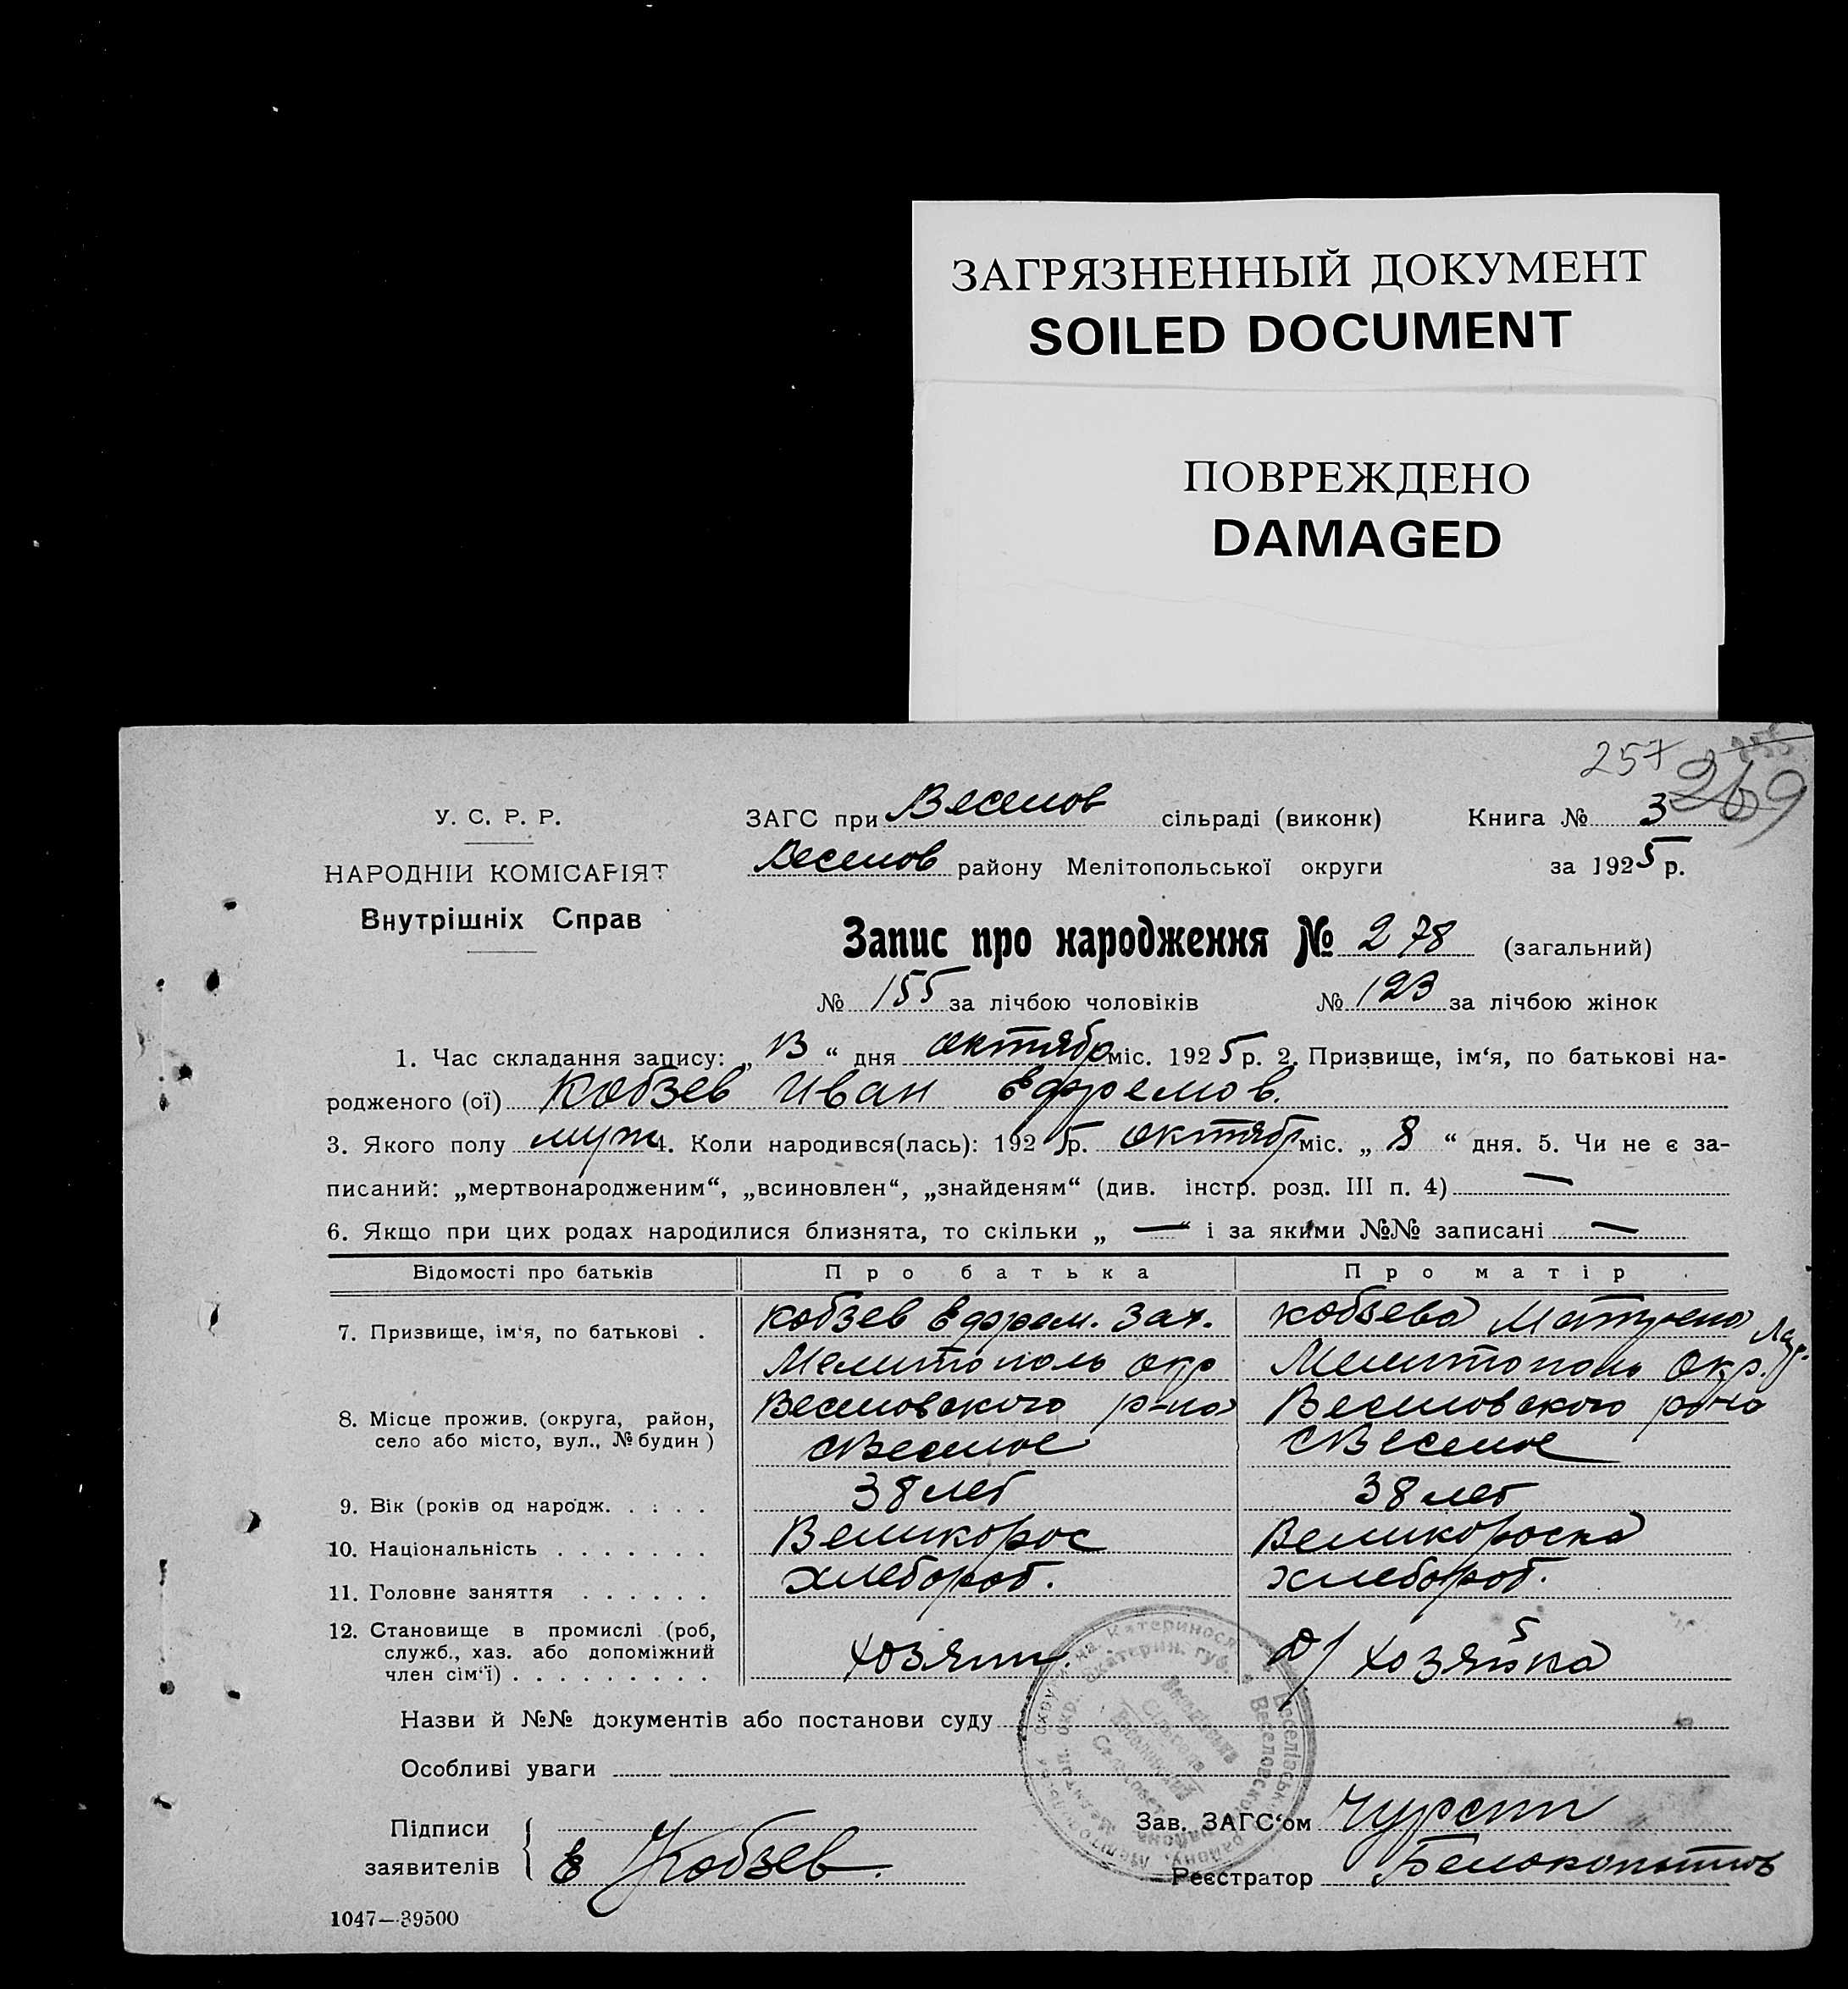 ЗАГРЯЗНЕННЫЙ ДОКУМЕНТ
SOILED DOCUMENT
ПОВРЕЖДЕНО
DAMAGED
257 269
У. С. Р. Р.
НАРОДНІИ КОМІСАРІЯТ
Внутрішніх Справ
ЗАГС при Веселов сільраді (виконк) Книга № 3
Веселов району Мелітопольської округи за 1925 р.
Запис про народження № 278 (загальний)
№ 155 за лічбою чоловіків № 123 за лічбою жінок
1. Час складання запису: „ 13 “ дня октябр міс. 1925 р. 2. Призвище, ім‘я, по батькові на-
родженого (ої) Кобзев Иван Ефремов.
3. Якого полу муж 4. Коли народився(лась): 1925 р. октябр міс. „ 8 “ дня. 5. Чи не є за-
писаний: „мертвонародженим“, „всиновлен“, „знайденям“ (див. інстр. розд. III п. 4) —
6. Якщо при цих родах народилися близнята, то скільки „ — “ і за якими №№ записані —
Відомості про батьків Про батька Про матір
7. Призвище, ім‘я, по батькові . Кобзев Ефрем. Зах. Кобзева Матрена Лазр.
Мелитополь окр Мелитополь Окр.
8. Місце прожив. (округа, район, Веселовского р-на Веселовского р-на
село або місто, вул., № будин) с Веселое с Веселое
9. Вік (років од народж. . . . . 38 лет 38 лет
10. Національність . . . . . . . Великорос Великороска
11. Головне заняття . . . . . . хлебороб. хлебороб.
12. Становище в промислі (роб,
служб., хаз. або допоміжний хозяин. д/ хозяйка
член сім‘ї) . . . . . . . . .
Назви й №№ документів або постанови суду
Особливі уваги
Підписи Зав. ЗАГС‘ом
заявителів Е Кобзев. Реєстратор Белокопытов
1047—39500